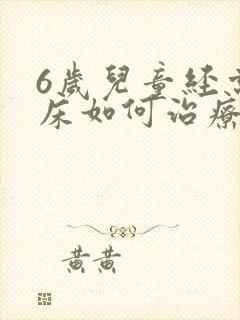 6歲兒童経常
床如何治療
黃黃